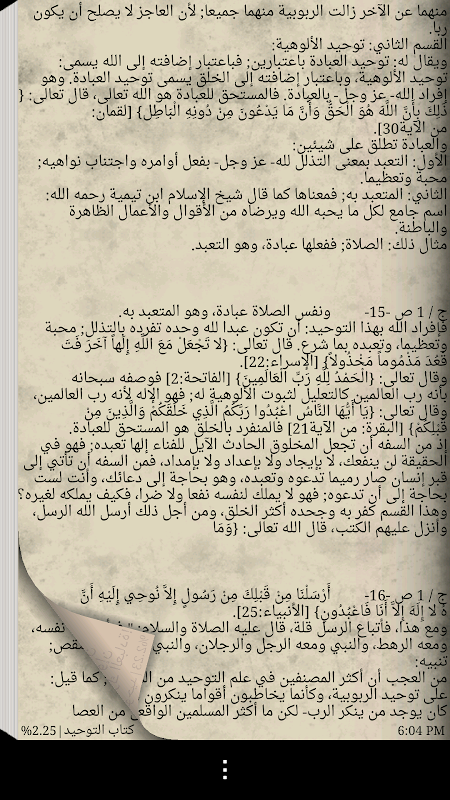 منهما عن الآخر زالت الربوبية منهما جميعا; لأن العاجز لا يصلح أن يكون
ربا.
القسم الثاني: توحيد الألوهية:
ويقال له: توحيد العبادة باعتبارين; فباعتبار إضافته إلى الله يسمى:
توحيد الألوهية، وباعتبار إضافته إلى الخلق يسمى توحيد العبادة. وهو
إفراد الله- عز وجل- بالعبادة. فالمستحق للعبادة هو الله تعالى، قال تعالى: {
ذَلِكَ بِأَنَّ اللَّهَ هُوَ الْحَقُّ وَأَنَّ مَا يَدْعُونَ مِنْ دُونِهِ الْبَاطِلُ} [لقمان:
من الآية30].
والعبادة تطلق على شيئين:
الأول: التعبد بمعنى التذلل لله- عز وجل- بفعل أوامره واجتناب نواهيه;
محبة وتعظيما.
الثاني: المتعبد به; فمعناها كما قال شيخ الإسلام ابن تيمية رحمه الله:
اسم جامع لكل ما يحبه الله ويرضاه من الأقوال والأعمال الظاهرة
والباطنة.
مثال ذلك: الصلاة; ففعلها عبادة، وهو التعبد.
ج / 1 ص -15- ونفس الصلاة عبادة، وهو المتعبد به.
فإفراد الله بهذا التوحيد: أن تكون عبدا لله وحده تفرده بالتذلل; محبة
وتعظيما، وتعبده بما شرع. قال تعالى: {لا تَجْعَلْ مَعَ اللَّهِ إِلَهاً آخَرَ فَتَ
قْعُدَ مَذْمُوماً مَخْذُولاً} [الإسراء:22].
وقال تعالى: {الْحَمْدُ لِلَّهِ رَبِّ الْعَالَمِينَ} [الفاتحة:2] فوصفه سبحانه
بأنه رب العالمين كالتعليل لثبوت الألوهية له; فهو الإله لأنه رب العالمين،
وقال تعالى: {يَا أَيُّهَا النَّاسُ اعْبُدُوا رَبَّكُمُ الَّذِي خَلَقَكُمْ وَالَّذِينَ مِنْ
قَبْلِكُمْ} [البقرة: من الآية21] فالمنفرد بالخلق هو المستحق للعبادة.
إذ من السفه أن تجعل المخلوق الحادث الآيل للفناء إلها تعبده; فهو في
الحقيقة لن ينفعك، لا بإيجاد ولا بإعداد ولا بإمداد، فمن السفه أن تأتي إلى
قبر إنسان صار رميما تدعوه وتعبده، وهو بحاجة إلى دعائك، وأنت لست
بحاجة إلى أن تدعوه; فهو لا يملك لنفسه نفعا ولا ضرا، فكيف يملكه لغيره؟
وهذا القسم كفر به وجحده أكثر الخلق، ومن أجل ذلك أرسل الله الرسل،
وأنزل عليهم الكتب، قال الله تعالى: {وَمَا
ج / 1 ص -16- أَرْسَلْنَا مِنْ قَبْلِكَ مِنْ رَسُولٍ إِلاَّ نُوحِي إِلَيْهِ أَنَّ
هُ لا إِلَهَ إِلاَّ أَنَا فَاعْبُدُونِ} [الأنبياء:25].
ومع هذا، فأتباع الرسل قلة، قال عليه الصلاة والسلام نفسه،
ومعه الرهط، والنبي ومعه الرجل والرجلان، والنبي
تنبيه:
من العجب أن أكثر المصنفين في علم التوحيد من ; كما قيل:
على توحيد الربوبية، وكأنما يخاطبون أقواما ينكرون
كان يوجد من ينكر الرب- لكن ما أكثر المسلمين الواقع من العصا
كتاب التوحيد|2.25% 6:04 PM